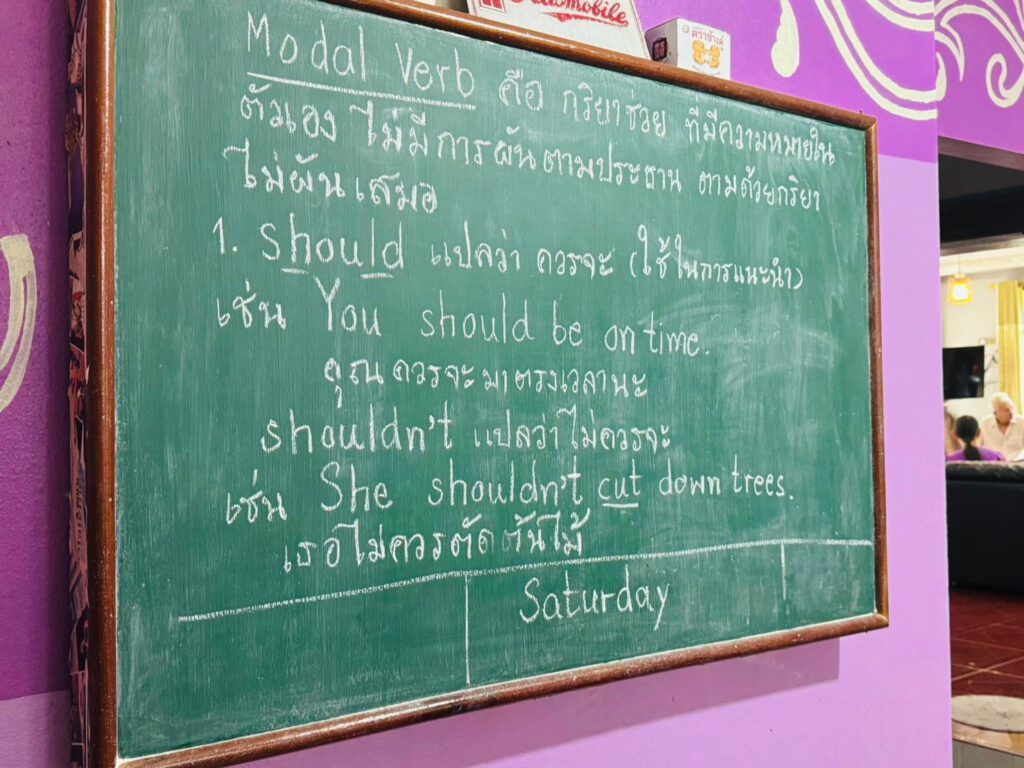 Oldsmobile
ตราช้างคู่
Modal Verb คือ กริยาช่วย ที่มีความหมายใน
ตัวเอง ไม่มีการผันตามประธาน ตามด้วยกริยา
ไม่ผันเสมอ
1. should แปลว่า ควรจะ (ใช้ในการแนะนำ)
เช่น You should be on time.
คุณควรจะมาตรงเวลานะ
shouldn't แปลว่าไม่ควรจะ
เช่น She shouldn't cut down trees.
เธอไม่ควรตัดต้นไม้
Saturday